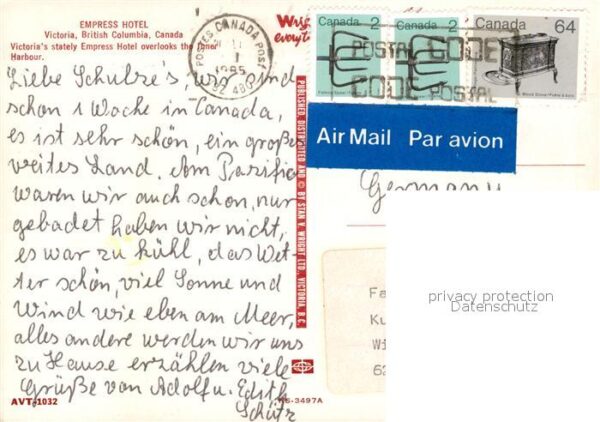 EMPRESS HOTEL
Victoria, British Columbia, Canada
Victoria's stately Empress Hotel overlooks the Inner
Harbour.
Liebe Schulze's, wir sind
schon 1 Woche in Canada,
es ist sehr schön, ein großes
weites Land. Am Pazific
waren wir auch schon, nur
gebadet haben wir nicht,
es war zu kühl, das Wet-
ter schön, viel Sonne und
Wind wie eben am Meer,
alles andere werden wir uns
zu Hause erzählen viele
Grüße von Adolf u. Edith
Schütz
AVT-1032
KS-3497A
PUBLISHED, DISTRIBUTED AND © BY STAN V. WRIGHT LTD., VICTORIA, B.C.
POSTES CANADA POST
1985
Canada 2
Canada 2
Canada 64
POSTAL CODE
CODE POSTAL
Air Mail Par avion
Germany
Fa
Ku
Wi
6
privacy protection
Datenschutz